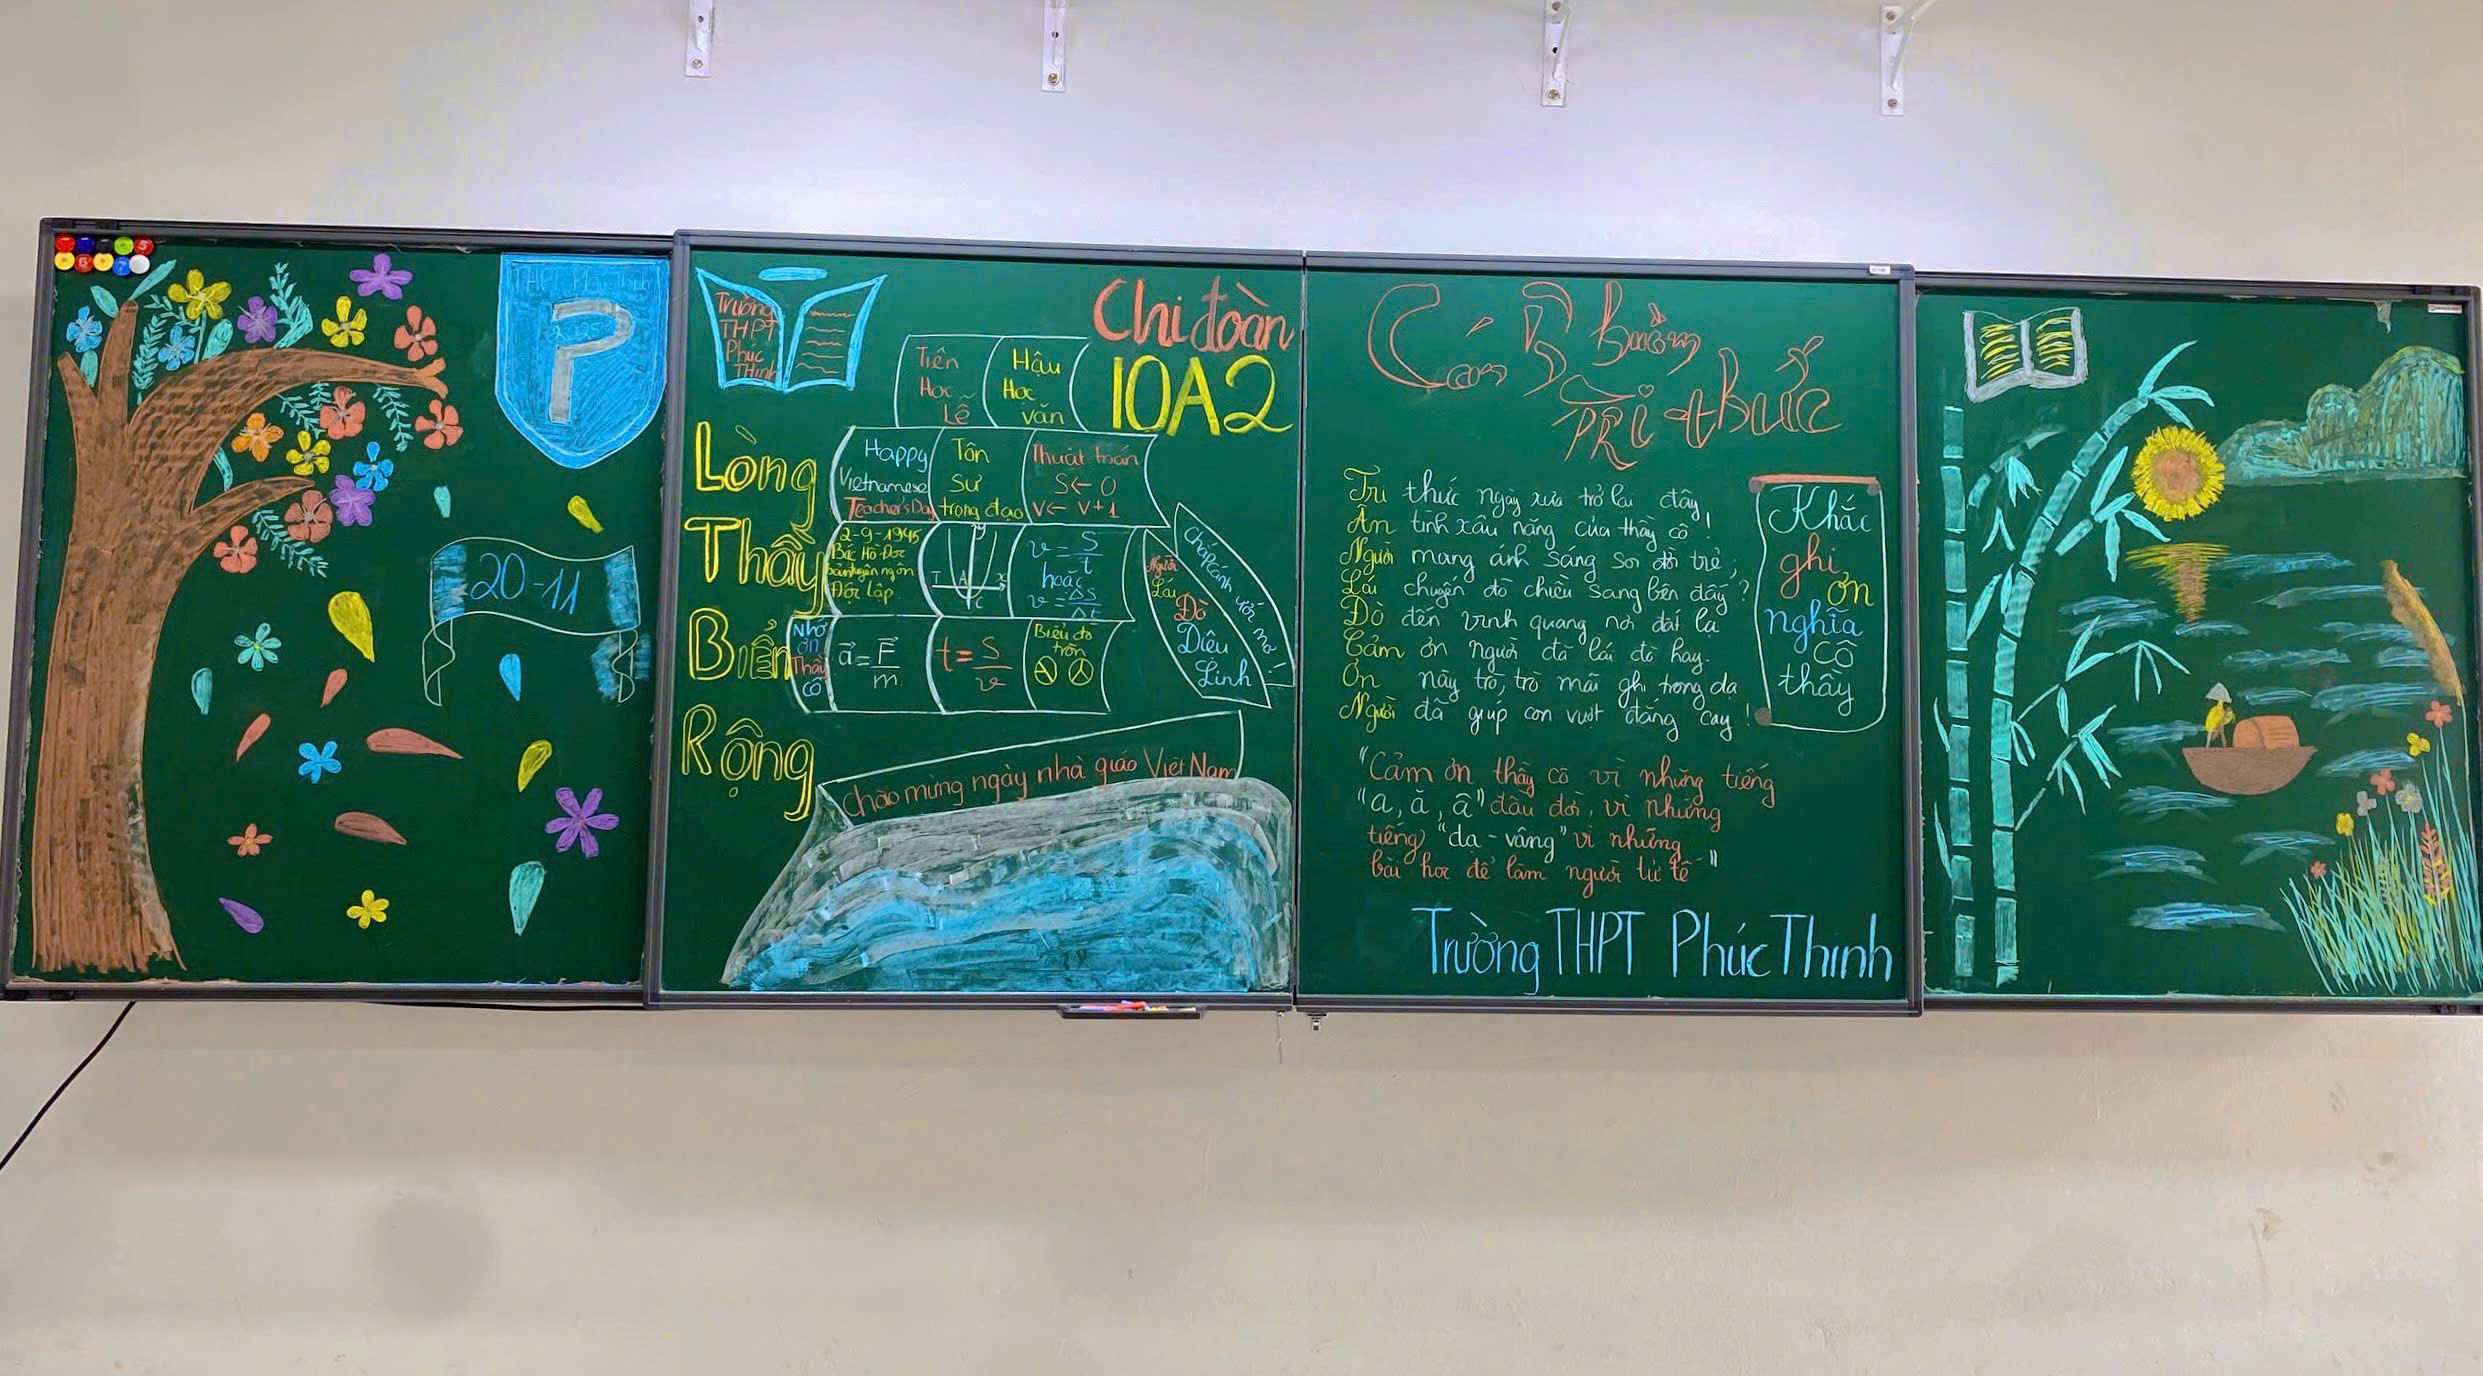 20-11
P
Trường
THPT
Phúc
Thịnh
Chi đoàn
10A2
Tiên
Học
Lễ
Hậu
Học
văn
Lòng
Thầy
Biển
Rộng
Happy
Vietnamese
Teacher's Day
Tôn
Sư
trọng đạo
Thuật toán
S ← 0
V ← V + 1
2-9-1945
Bác Hồ Đọc
bản tuyên ngôn
Độc lập
v = S/t
hoặc
v = ΔS/Δt
Nhớ
ơn
Thầy
cô
a = F/m
t = S/v
Biểu đồ
tròn
Người
Lái
Đò
Diệu
Linh
Chắp cánh ước mơ !
Chào mừng ngày nhà giáo Việt Nam
Cánh buồm
Tri thức
Tri thức ngày xưa trở lại đây
Ân tình sâu nặng của thầy cô !
Người mang ánh sáng soi đời trẻ ;
Lái chuyến đò chiều sang bên đấy ?
Đò đến vinh quang nơi đất lạ
Cảm ơn người đã lái đò hay.
Ơn này trò, trò mãi ghi trong dạ
Người đã giúp con vượt đắng cay !
Khắc
ghi
ơn
nghĩa
cô
thầy
"Cảm ơn thầy cô vì những tiếng
"a, ă, â" đầu đời, vì những
tiếng "dạ - vâng" vì những
bài học để làm người tử tế"
Trường THPT Phúc Thịnh